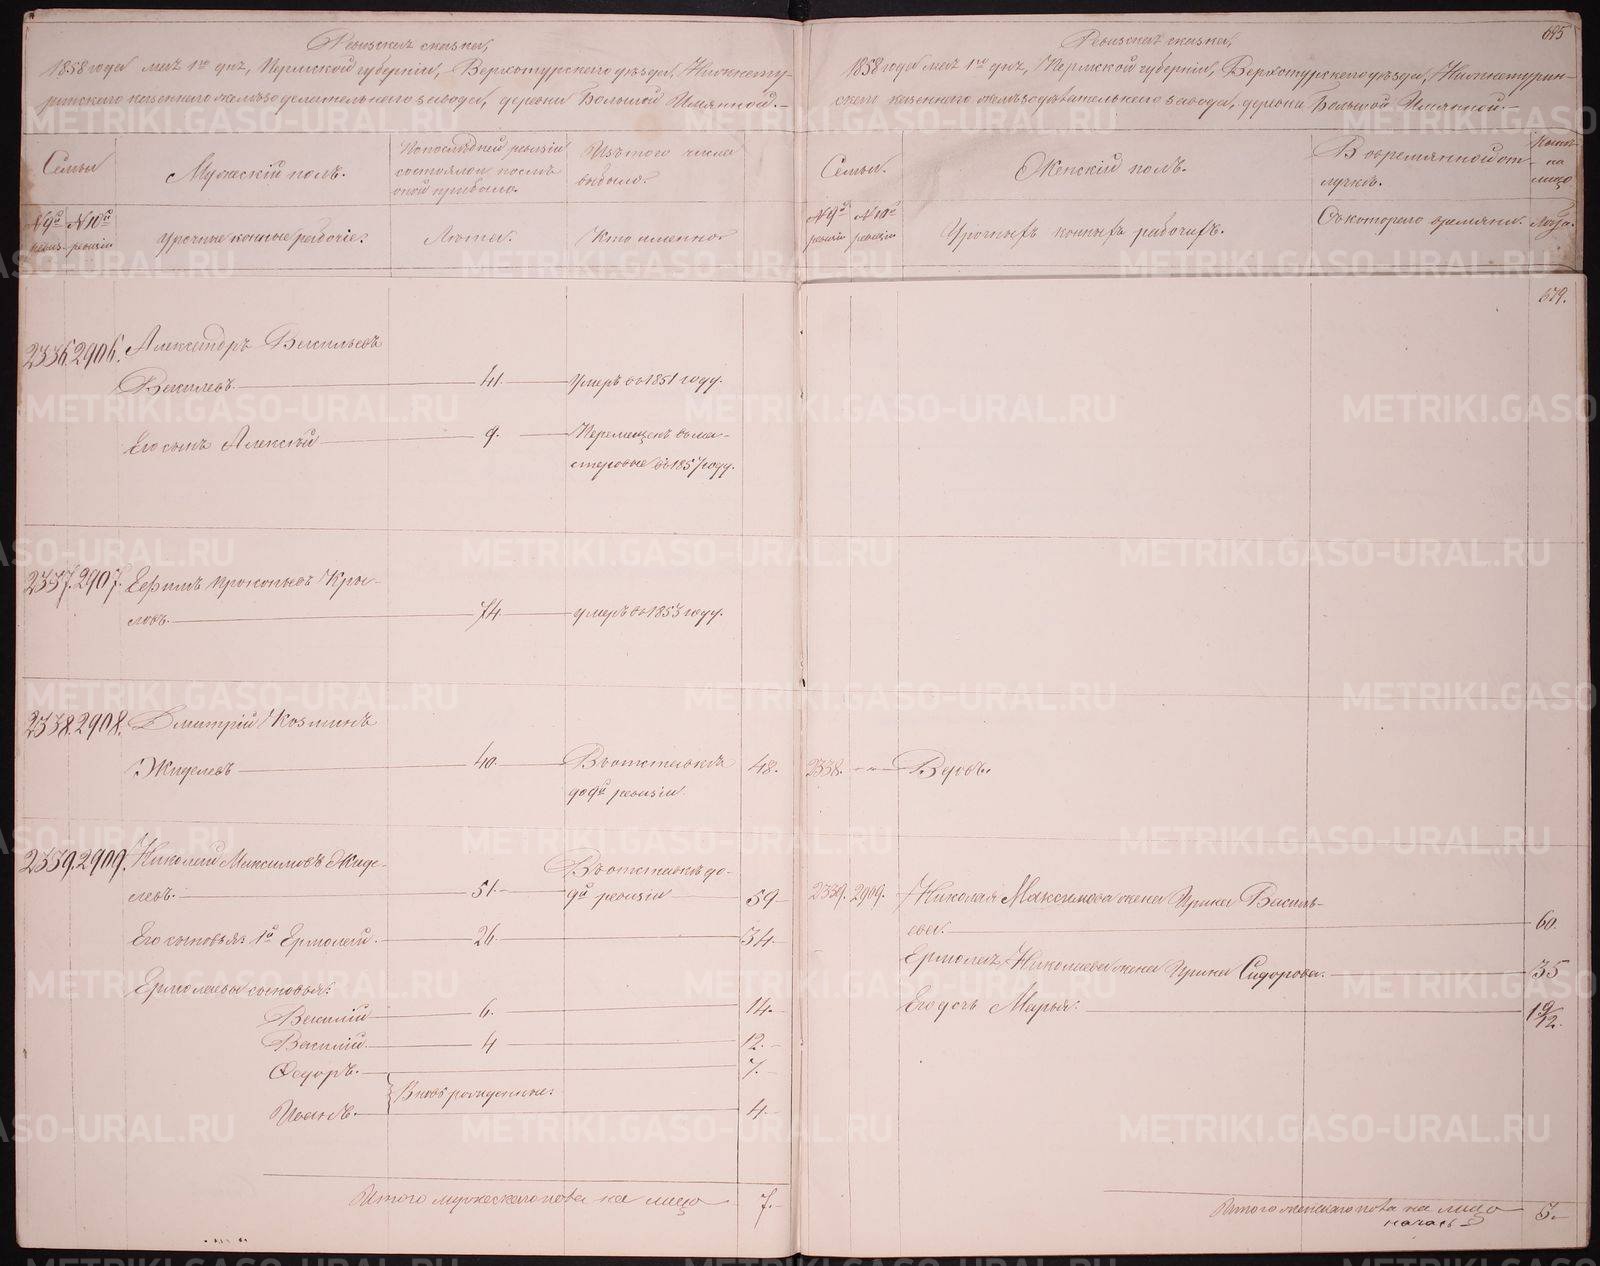 Ревизская сказка,
1858 года мая 1го дня, Пермской губернiи, Верхотурского уезда, Нижнету-
ринского казенного железоделательнаго завода, деревни Большой Именной.-
Семьи
Мужескiй полъ.
По последней ревизiи
состояло и после
оной прибыло.
Изъ того числа
выбыло.
№ 9й ревиз-
№ 10й ревизiи
Урочные конные рабочiе.
Лета.
Кто именно
2336. 2906. Александръ Васильевъ
Василевъ. 41. Умеръ въ 1851 году.
Его сынъ Алексей 9. Перемещенъ въ ма-
стеровые въ 1857 году.
2337. 2907. Ефимъ Прокопьевъ Кры-
ловъ. 74 умеръ въ 1853 году.
2338. 2908. Дмитрiй Козминъ
Жиделевъ 40. Въ отставке 48.
до 9й ревизiи
2339. 2909. Николай Максимовъ Жиде-
левъ. 51. Въ отставке до-
9й ревизiи 59
Его сыновья: 1й Ермолай. 26. 34.
Ермолаевы сыновья:
Василiй 6. 14.
Василiй 4 12.
Федоръ. 7.
Вновь рожденные.
Иванъ. 4.
Итого мужескаго пола на лицо 7.
685
Ревизская сказка,
1858 года мая 1го дня, Пермской губернiи, Верхотурского уезда, Нижнетурин-
скаго казеннаго железоделательнаго завода, деревни Большой Именной.-
Семьи.
Женскiй полъ.
В временной от-
лучке.
Ныне
на
лицо
№ 9й ревизiи
№ 10й ревизiи
Урочныхъ конныхъ рабочихъ.
Съ котораго времяни.
Лета.
579.
2338. -"- Вдовъ.
2339. 2909. Николая Максимова жена Ирина Василь-
ева. 60.
Ермолая Николаева жена Ирина Сидорова. 35
Его дочь Марья. 1 9/12.
Итого женскаго пола на лицо 3.
METRIKI.GASO-URAL.RU